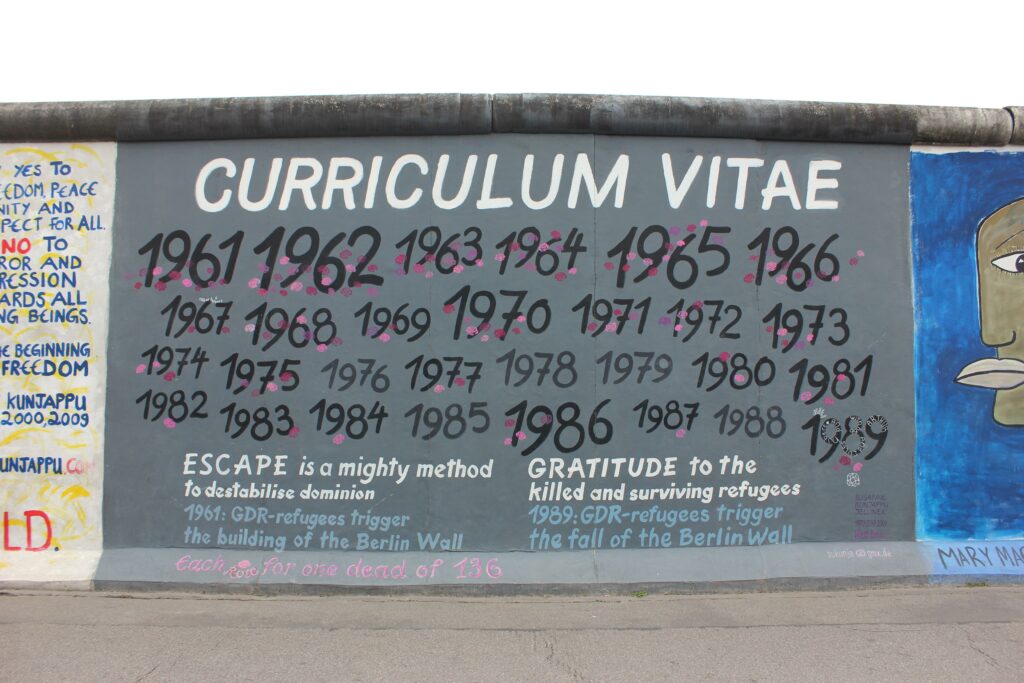 YES TO
EDOM, PEACE
NITY AND
PECT FOR ALL.
NO TO
ROR AND
RESSION
ARDS ALL
NG BEINGS.
E BEGINNING
FREEDOM
KUNJAPPU
2000, 2009
UNJAPPU.CO
LD.
CURRICULUM VITAE
1961 1962 1963 1964 1965 1966
1967 1968 1969 1970 1971 1972 1973
1974 1975 1976 1977 1978 1979 1980 1981
1982 1983 1984 1985 1986 1987 1988 1989
ESCAPE is a mighty method
to destabilise dominion
1961: GDR-refugees trigger
the building of the Berlin Wall
GRATITUDE to the
killed and surviving refugees
1989: GDR-refugees trigger
the fall of the Berlin Wall
SUSANNE
KUNJAPPU
JELLINEK
Each rose for one dead of 136
sukunja@gmx.de
MARY MAC